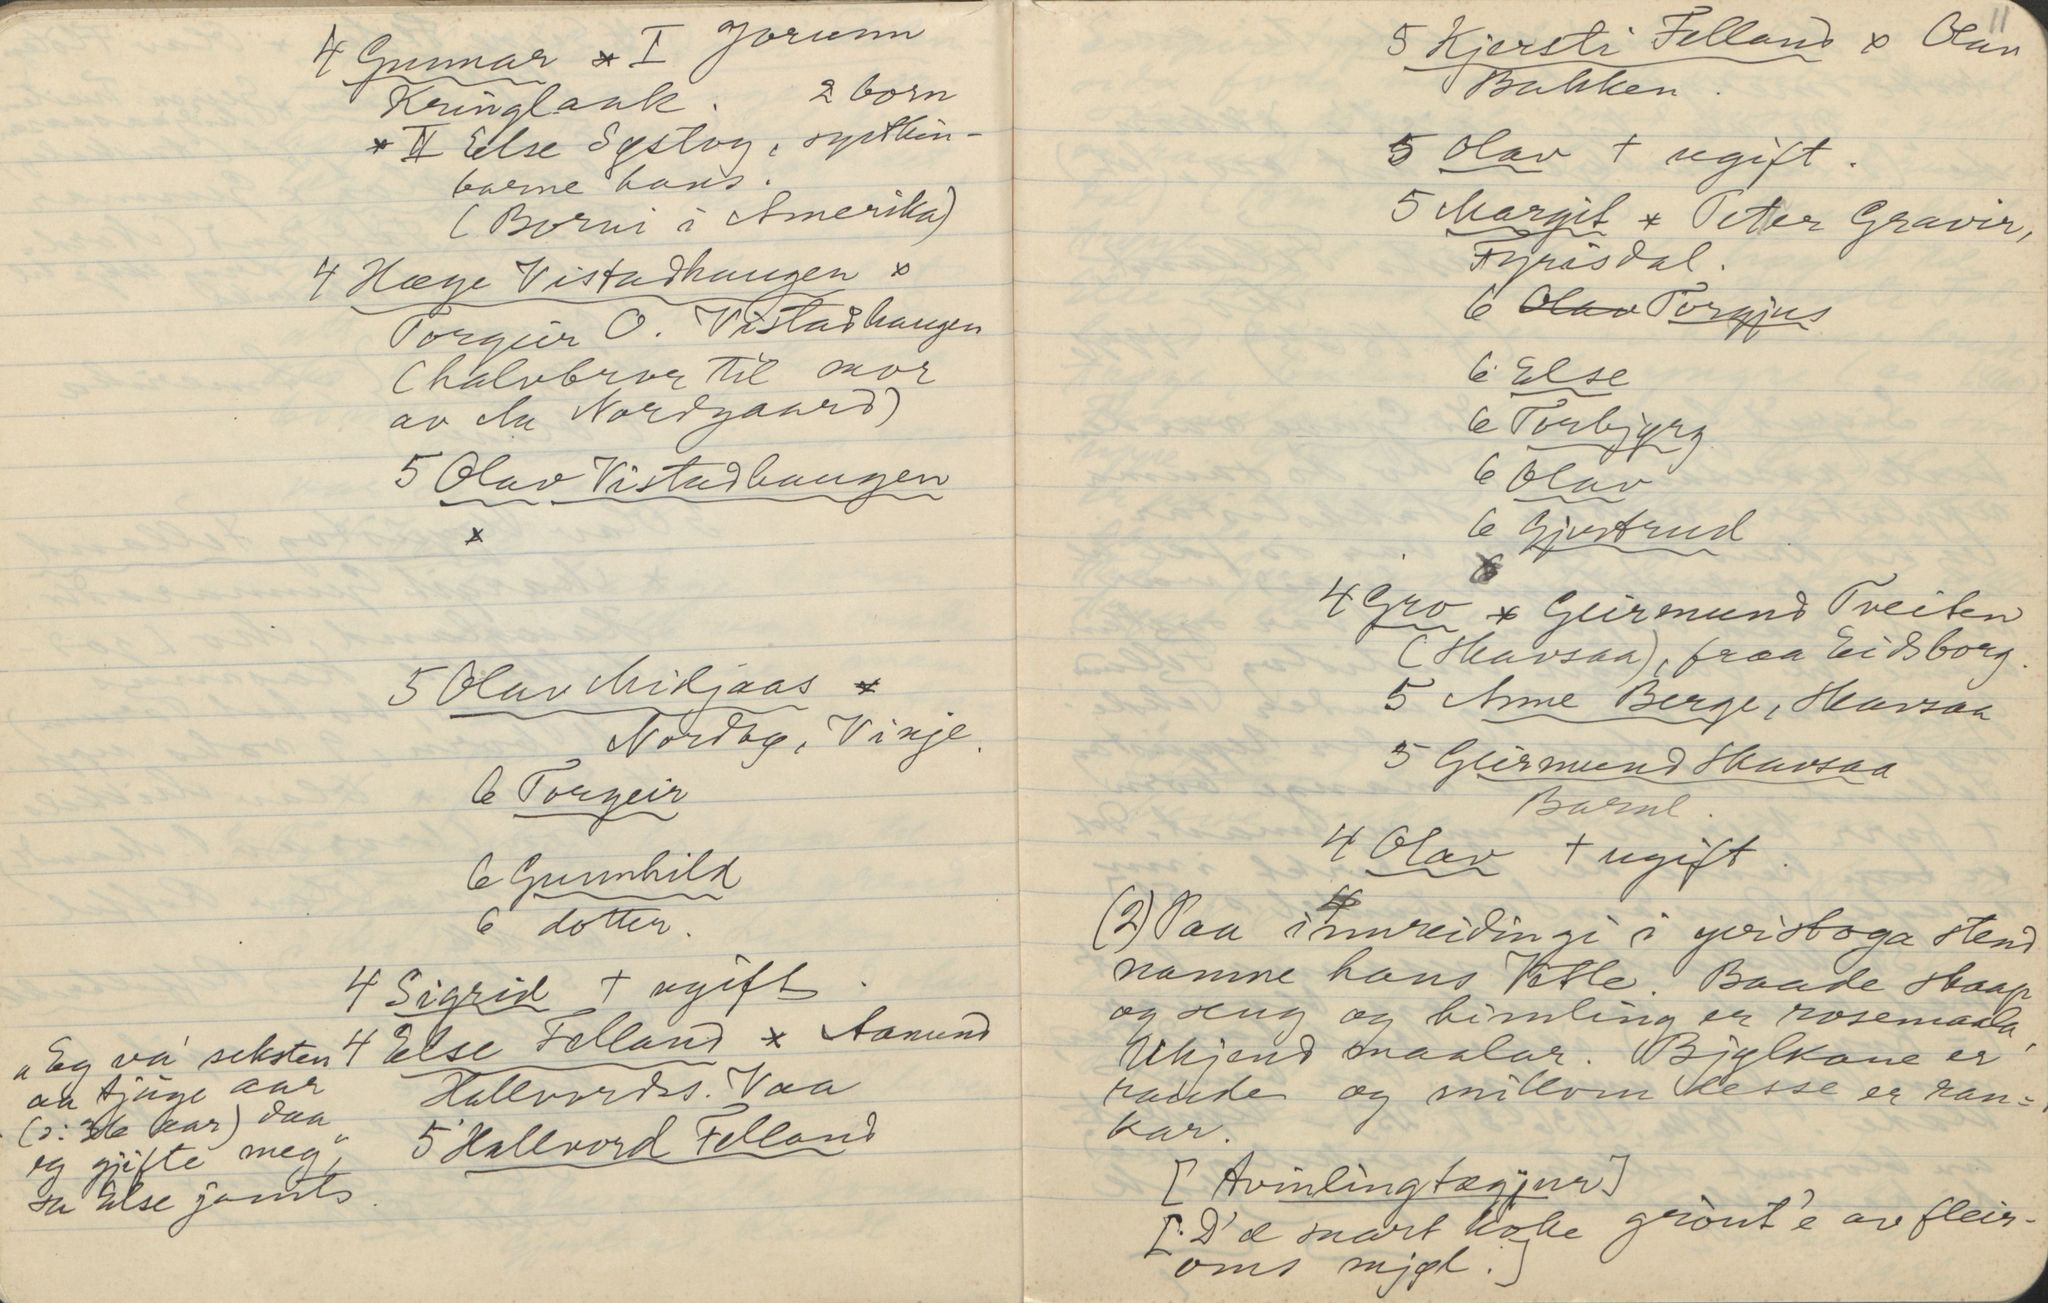 4 Gunnar * I Jorunn
Kringlaak. 2 born
* II Else Systog, systkin-
barne hans.
(Borni i Amerika)
4 Hæge Vistadhaugen *
Torgeir O. Vistadhaugen
(halvbror til mor
av Nordgaard)
5 Olav Vistadhaugen
*
5 Olav Midjaas *
Nordbø, Vinje.
6 Torgeir
6 Gunnhild
6 dotter.
4 Sigrid + ugift.
4 Else Felland * Aamund
Hallvords. Vaa
5 Hallvord Felland
"Eg va' seksten
aa tjuge aar
(ɔ: 36 aar) daa
eg gjifte meg,"
sa Else jamts.
11
5 Kjersti Felland * Olav
Bakken.
5 Olav + ugift.
5 Margit * Peter Gravir,
Fyrisdal.
6 Olav Torgjus
6 Else
6 Torbjørg
6 Olav
6 Gjertrud
4 Gro * Geirmund Tveiten
(Skavsaa), fraa Eidsborg.
5 Anne Berge, Skavsaa
5 Geirmund Skavsaa
Barnl.
4 Olav + ugift.
(2) Paa innreidingi i stend
namne hans Vetle. Baade skaap
og seng og himling er rosemaala,
Ukjend maalar. Bjølkane er
raude og millom desse er ran-
kar.
[Avinlingtægjur]
[D'æ snart koke graut'e av fleir-
oms mjøl.]